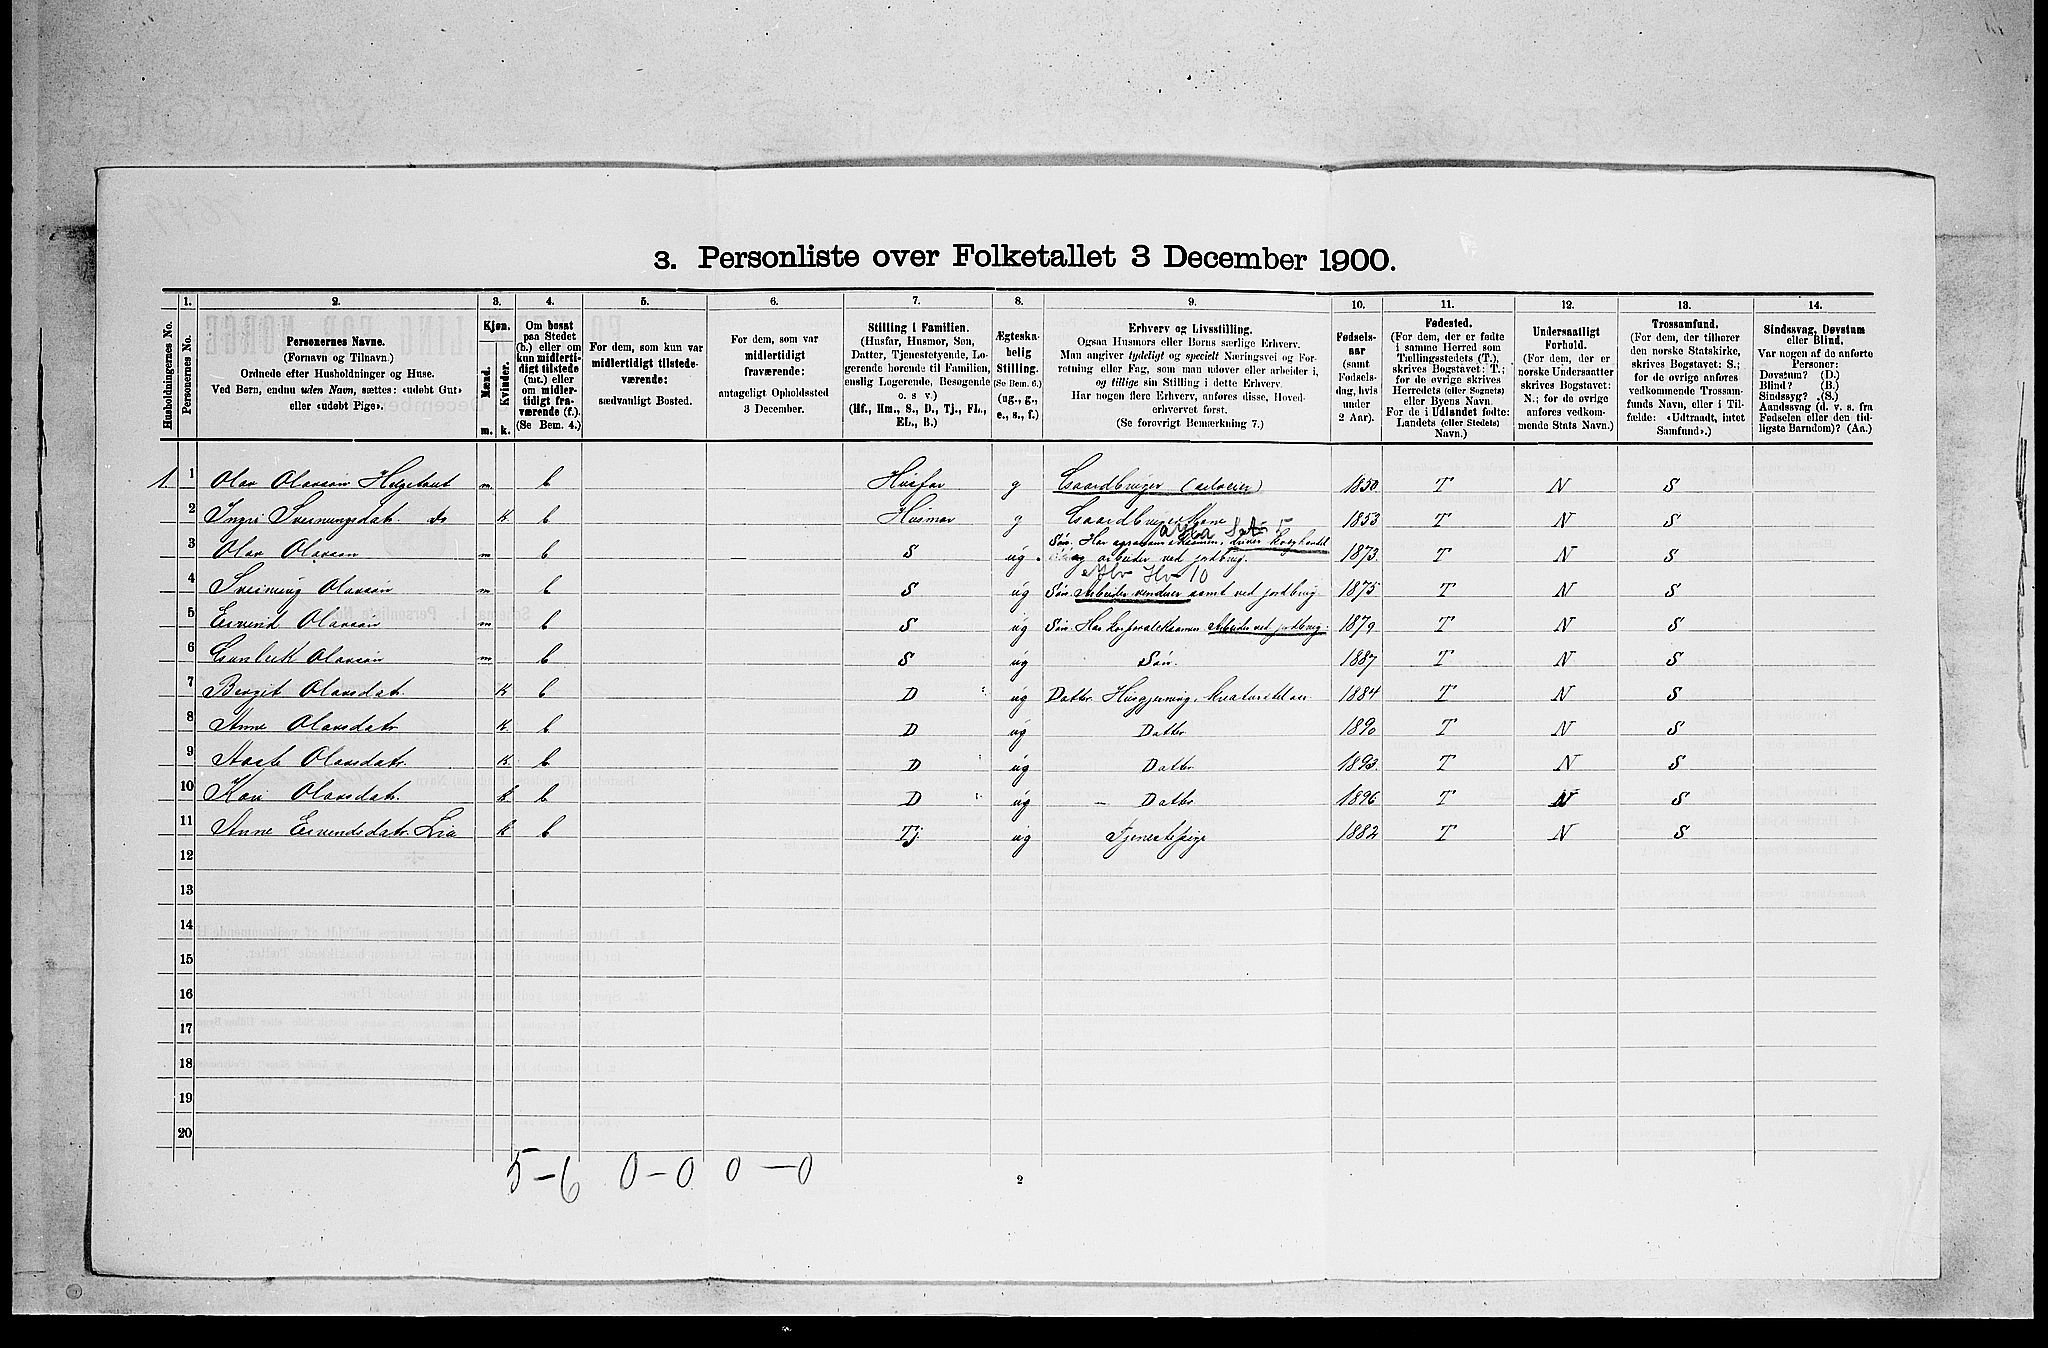 3. Personliste over Folketallet 3 December 1900.
1. 2. 3. 4. 5. 6. 7. 8. 9. 10. 11. 12. 13. 14.
Husholdningernes No.
Personernes No.
Personernes Navne.
(Fornavn og Tilnavn.)
Ordnede efter Husholdninger og Huse.
Ved Børn, endnu uden Navn, sættes: «udøbt Gut»
eller «udøbt Pige».
Kjøn.
Mænd.
Kvinder.
m. k.
Om bosat
paa Stedet
(b.) eller om
kun midlerti-
digt tilstede
(mt.) eller
om midler-
tidigt fra-
værende (f.).
(Se Bem. 4.)
For dem, som kun var
midlertidigt tilstede-
værende:
sædvanligt Bosted.
For dem, som var
midlertidigt
fraværende:
antageligt Opholdssted
3 December.
Stilling i Familien.
(Husfar, Husmor, Søn,
Datter, Tjenestetyende, Lo-
gerende hørende til Familien,
enslig Logerende, Besøgende
o. s. v.)
(Hf., Hm., S., D., Tj., FL.,
EL., B.)
Ægteska-
belig
Stilling.
(Se Bem. 6.)
(ug., g.,
e., s., f.)
Erhverv og Livsstilling.
Ogsaa Husmors eller Børns særlige Erhverv.
Man angiver tydeligt og specielt Næringsvei og For-
retning eller Fag, som man udøver eller arbeider i,
og tillige sin Stilling i dette Erhverv.
Har nogen flere Erhverv, anføres disse, Hoved-
erhvervet først.
(Se forøvrigt Bemærkning 7.)
Fødsels-
aar
(samt
Fødsels-
dag, hvis
under
2 Aar).
Fødested.
(For dem, der er fødte
i samme Herred som
Tællingsstedets (T.),
skrives Bogstavet: T.;
for de øvrige skrives
Herredets (eller Sognets)
eller Byens Navn.
For de i Udlandet fødte:
Landets (eller Stedets)
Navn.)
Undersaatligt
Forhold.
(For dem, der er
norske Undersaatter
skrives Bogstavet:
N.; for de øvrige
anføres vedkom-
mende Stats Navn.)
Trossamfund.
(For dem, der tilhører
den norske Statskirke,
skrives Bogstavet: S.;
for de øvrige anføres
vedkommende Trossam-
funds Navn, eller i Til-
fælde: «Udtraadt, intet
Samfund».)
Sindssvag, Døvstum
eller Blind.
Var nogen af de anførte
Personer:
Døvstum? (D.)
Blind? (B.)
Sindssyg? (S.)
Aandssvag (d. v. s. fra
Fødselen eller den tid-
ligste Barndom)? (Aa.)
1 1 Olav Olavsøn Helgetveit m. b Husfar g Gaardbruger (selveier) 1850. T N S
2 Ingri Sveinungsdatr. do K b Husmor g Gaardbrugerkone 1853 T N S
3 Olav Olavsøn m b S ug Søn. Har agronomeksamen, driver kreghandel 1873. T N S
og arbeider ved jordbrug.
4 Sveinung Olavsøn m b S ug Søn. Arbeider samt ved jordbrug 1875 T N S
5 Eivind Olavsøn m b S ug Søn. Har korporaleksamen Arbeider ved jordbrug. 1879 T N S
6 Gunleik Olavsøn m b S ug Søn. 1887 T N S
7 Bergit Olavsdatr. K b D ug Datter. Husgjerning, kreaturstel 1884 T N S
8 Anne Olavsdatr K. b D ug Datter 1890 T N S
9 Aase Olavsdatr. K. b D ug Datter 1893. T N S
10 Kari Olavsdatr. k b D ug – Datter 1896 T N S
11 Anne Eivendsdatr. Lia k b Tj. ug Tjenestepige 1882 T N S
12
13
14
15
16
17
18
19
20
5-6 0-0 0-0
2